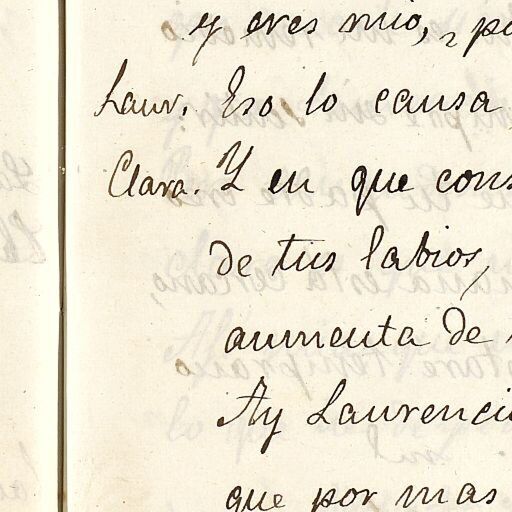 y eres mio,
Laur. Eso lo causa
Clara. Y en que cons
de tus labios,
aumenta de
Ay Laurenci
que por mas